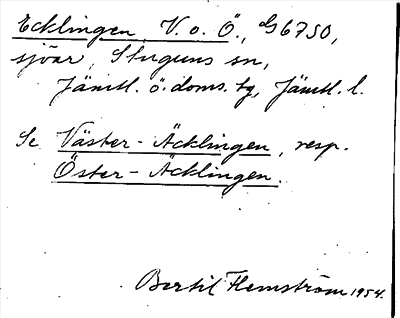 Ecklingen, V. o. Ö., G6750,
sjöar, Stuguns sn,
Jämtl. ö. doms. tg, Jämtl. l.
Se Väster-Äcklingen, resp.
Öster-Äcklingen.
Bertil Flemström 1954.